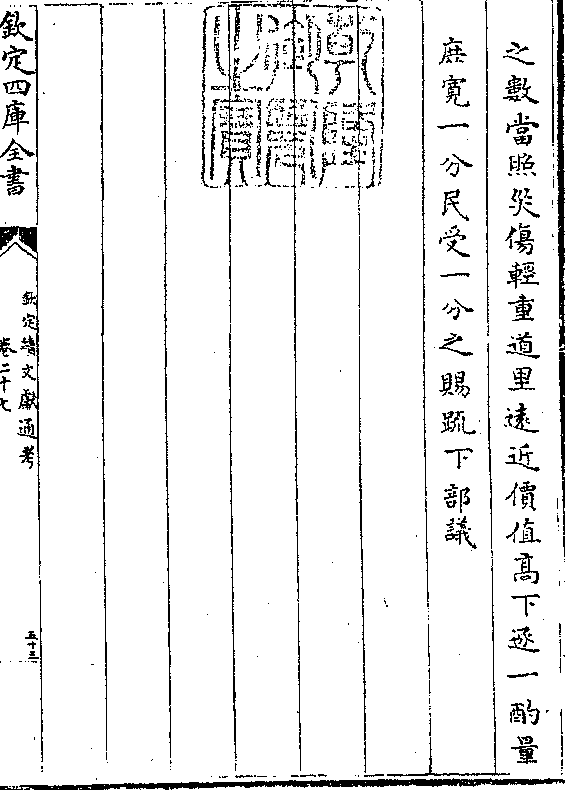 之數當照災傷輕重道里逺近價值髙下逐一酌量
庶寛一分民受一分之賜疏下部議
乾隆御覽之寶
欽定四庫全書
欽定續文獻通考
卷二十七
五十三